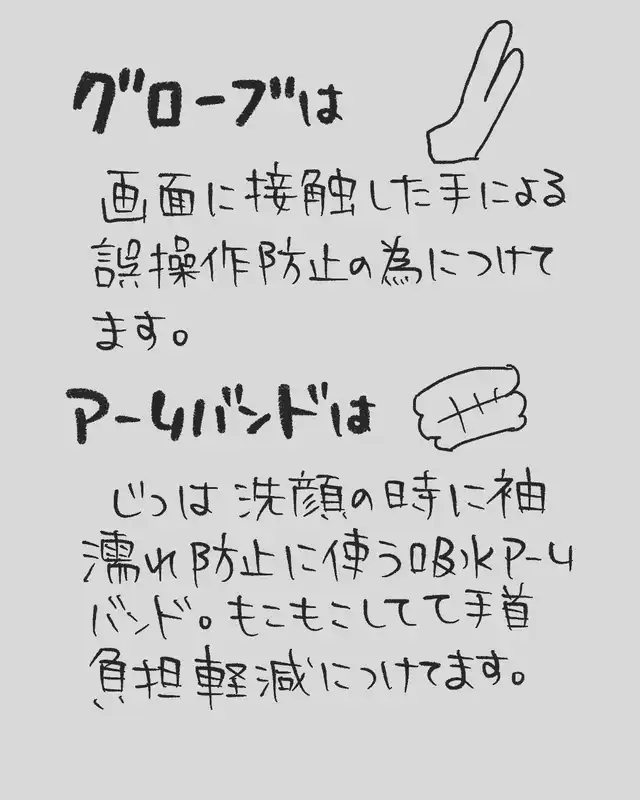 グローブは
画面に接触した手による
誤操作防止の為につけて
ます。
アームバンドは
じつは洗顔の時に袖
濡れ防止に使う吸水アーム
バンド。もこもこしてて手首
負担軽減につけてます。